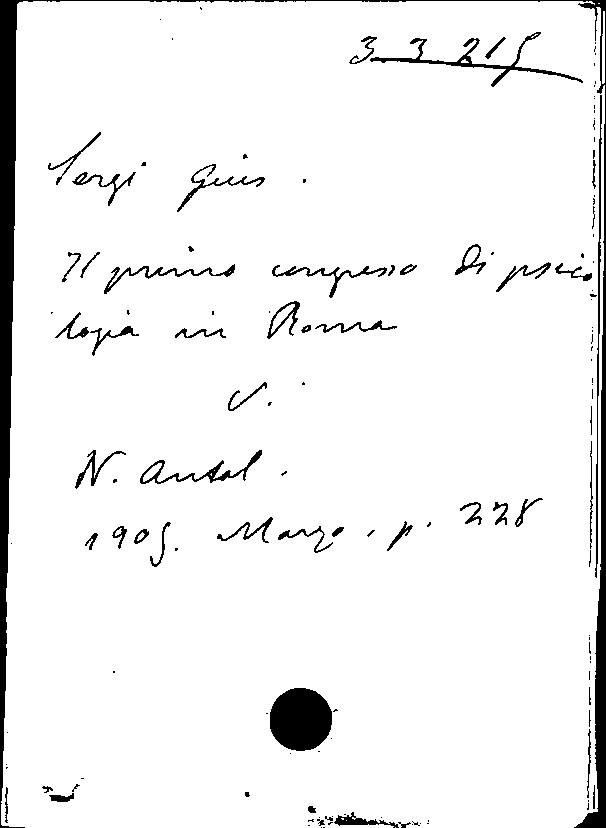 3.3 215
Sergi Gius.
Il primo congresso di psico
logia in Roma
V.
N. Antol.
1905. Marzo. p. 228